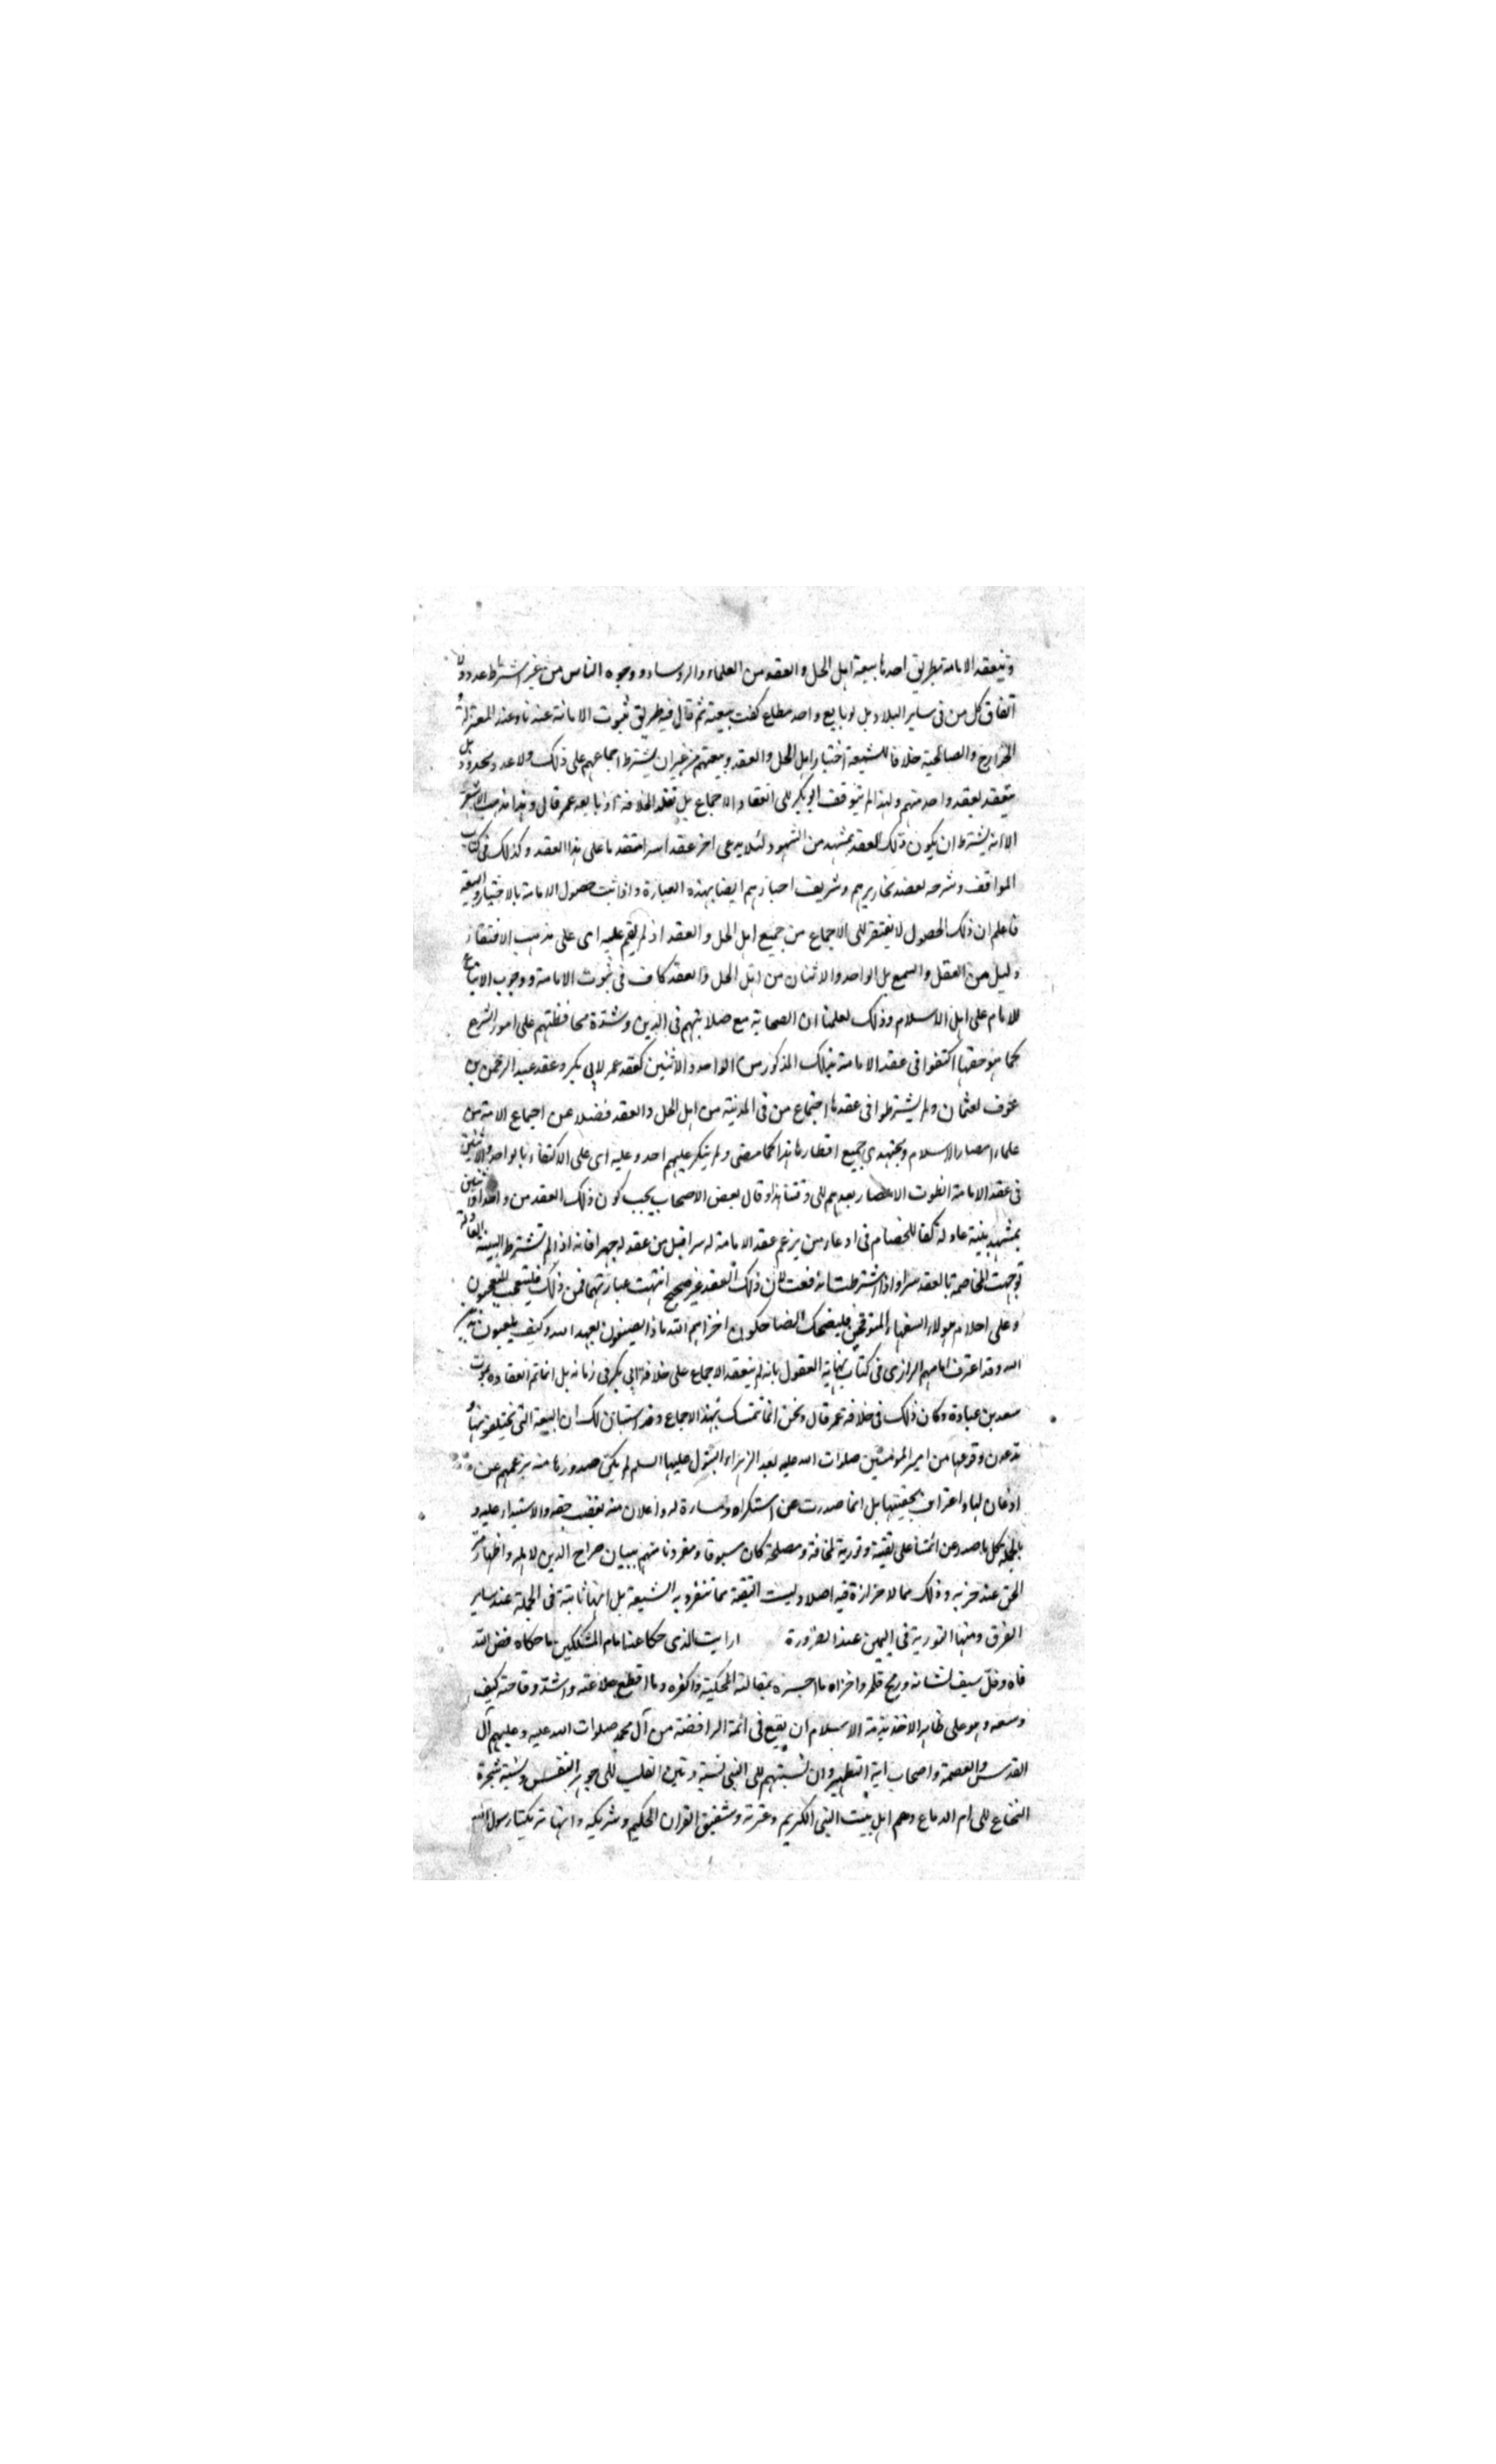 وتنعقد الامامة بطريق احدها بيعة اهل الحل والعقد من العلماء والروساء ووجوه الناس من غير اشتراط عدد ولا
اتفاق كل من فى ساير البلاد بل لو بايع واحد مطاع كفت بيعته ثم قال فيه طريق ثبوت الامامة عندنا وعند المعتزلة و
الخوارج والصالحية خلافا للشيعة اختيار اهل الحل والعقد وبيعتهم من غير ان يشترط اجماعهم على ذلك ولا عدد محدود بل
ينعقد بعقد واحد منهم ولهذا لم يتوقف ابو بكر الى انعقاد الاجماع بل تقلد الخلافة اذ بايعه عمر قال وهذا مذهب الاشعرى
الا انه يشترط ان يكون ذلك العقد بمشهد من الشهود لئلا يدعى اخر عقدا سرا متقدما على هذا العقد وكذلك فى كتاب
المواقف وشرحه لعضد نحاريرهم وشريف احبارهم ايضا بهذه العبارة واذا ثبت حصول الامامة بالاختيار والبيعة
فاعلم ان ذلك الحصول لا يفتقر الى الاجماع من جميع اهل الحل والعقد اذ لم يقم عليه اى على مذهب الافتقار
دليل من العقل والسمع بل الواحد والاثنان من اهل الحل والعقد كاف فى ثبوت الامامة ووجوب الاتباع
للامام على اهل الاسلام وذلك لعلمنا ان الصحابة مع صلابتهم فى الدين وشدة محافظتهم على امور الشرع
كما هو حقها اكتفوا فى عقد الامامة بذلك المذكور من الواحد والاثنين كعقد عمر لابى بكر وعقد عبد الرحمن بن
عوف لعثمان ولم يشترطوا فى عقدها اجتماع من فى المدينة من اهل الحل والعقد فضلا عن اجماع الامة من
علماء امصار الاسلام ومجتهدى جميع اقطارها هذا كما مضى ولم ينكر عليهم احد وعليه اى على الاكتفاء بالواحد والاثنين
فى عقد الامامة انطوت الاعصار بعدهم الى وقتنا هذا وقال بعض الاصحاب يجب كون ذلك العقد من واحد او اثنين
بمشهد بينة عادلة كفا للخصام فى ادعاء من يزعم عقد الامامة له سرا قبل من عقد له جهرا فانه اذا لم تشترط البينة العادلة
توجهت المخاصمة بالعقد سرا واذا اشترطت اندفعت لان ذلك العقد غير صحيح انتهت عبارتهما فمن ذلك فليتعجب المتعجبون
وعلى احلام هولاء السفهاء المتوقحين فليضحك الضاحكون اخزاهم الله ماذا يصنعون بعهد الله وكيف يلعبون بدين
الله وقد اعترف امامهم الرازى فى كتاب نهاية العقول بانه لم ينعقد الاجماع على خلافة ابى بكر فى زمانه بل انما تم انعقاده بموت
سعد بن عبادة وكان ذلك فى خلافة عمر قال ونحن انما نتمسك بهذا الاجماع وقد استبان لك ان البيعة التى
تدعون وقوعها من امير المؤمنين صلوات الله عليه بعد الزهراء البتول عليها السلم لم يكن صدورها منه بزعمهم عن
اذعان لها واعتراف بحقيتها بل انما صدرت عن استكراه واعلان منه بغصب حقه والاستبداد عليه و
بالجملة كل ما صدر عن ائمتنا على تقية وتورية لمخافة ومصلحة كان مسبوقا ومقرونا منهم ببيان صراح الدين لاهله واظهار مر
الحق عند حزبه وذلك مما لا حزازة فيه اصلا وليست التقية مما تنفرد به الشيعة بل انها ثابتة فى الجملة عند ساير
الفرق ومنها التورية فى اليمين عند الضرورة ارايت الذى حكا عنا امام المشككين ما حكاه فض الله
فاه وفل سيف لسانه ورمح قلمه واخزاه ما اجسره بمقالته المحكية واكفره وما افظع خلاعته واشد وقاحته كيف
وسعه وهو على ظاهر الاخذ بذمة الاسلام ان يقع فى ائمة الرافضة من آل محمد صلوات الله عليه وعليهم آل
القدس والعصمة واصحاب اية التطهير وان نسبتهم الى النبى نسبة وتين القلب الى جوهر النفس ونسبة شجرة
النخاع الى ام الدماغ وهم اهل بيت النبى الكريم وعترته وشقيق القران الحكيم وشريكه وانها تريكتا رسول الله